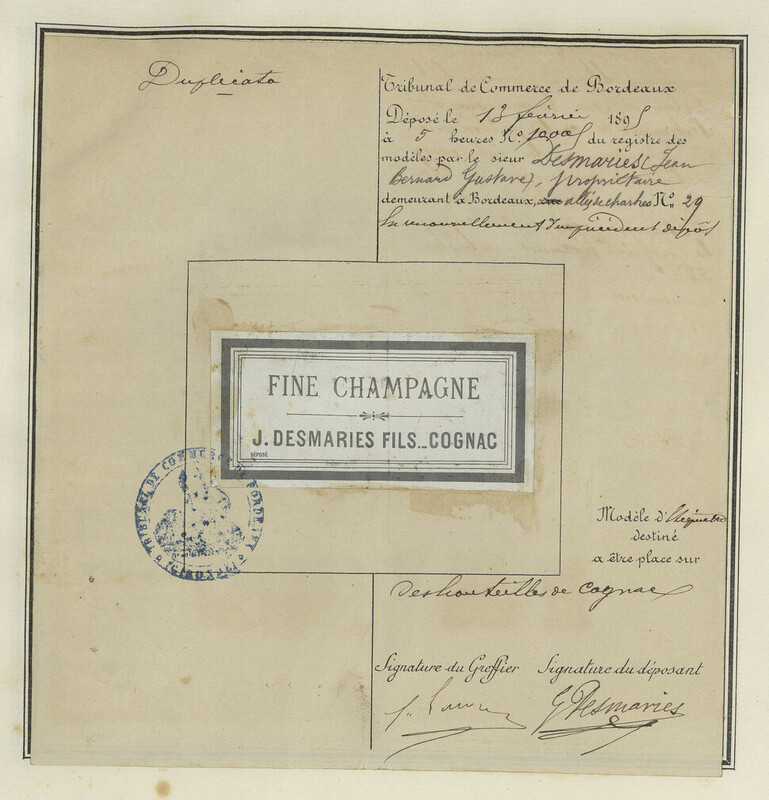 Duplicata
Tribunal de Commerce de Bordeaux
Déposé le 13 février 1895
à 5 heures No. 1000 du registre des
modèles par le sieur Desmaries (Jean
Bernard Gustave), propriétaire
demeurant à Bordeaux, allées de chartres No. 29
En renouvellement d'un précédent dépôt
FINE CHAMPAGNE
J. DESMARIES FILS_COGNAC
DÉPOSÉ
TRIBUNAL DE COMMERCE DE BORDEAUX
(GIRONDE)
Modèle d'étiquette
destiné
a être place sur
des bouteilles de cognac
Signature du Greffier Signature du déposant
G Desmaries